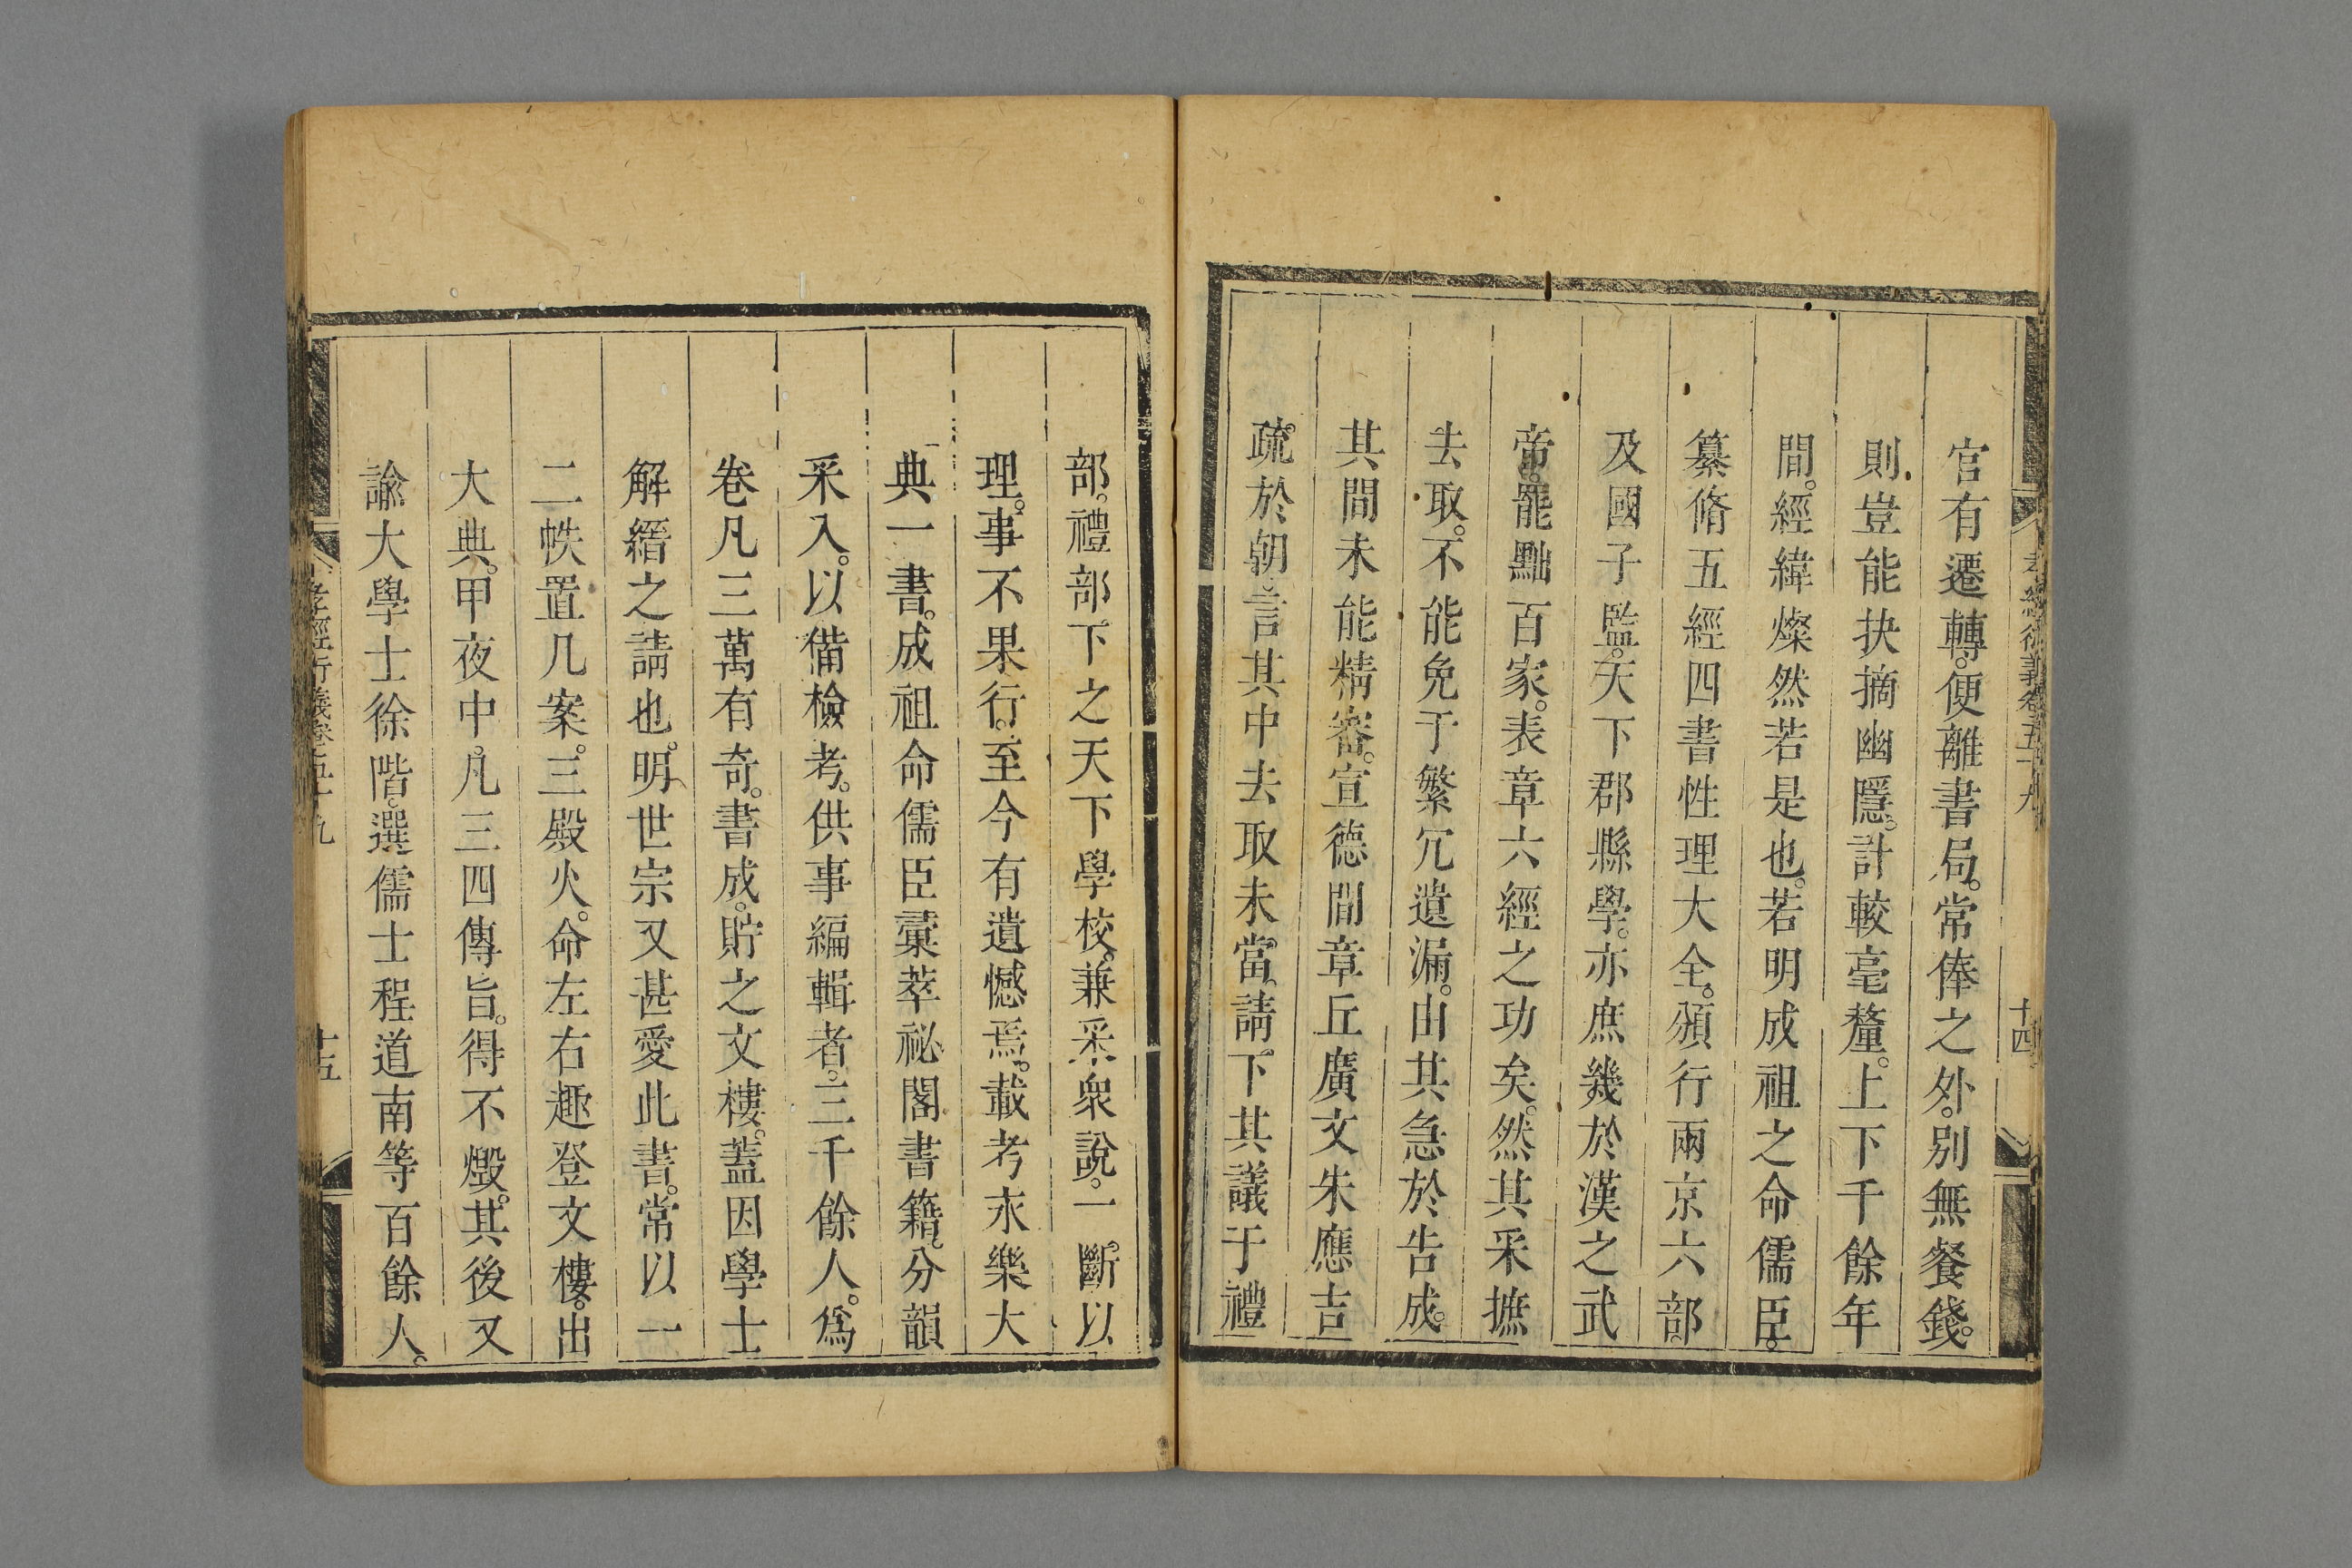 孝經衍義卷五十九 十四
官有遷轉。便離書局。常俸之外。別無餐錢。
則豈能抉摘幽隱。計較毫釐。上下千餘年
間。經緯燦然若是也。若明成祖之命儒臣。
纂脩五經四書性理大全。頒行兩京六部
及國子監。天下郡縣學。亦庶幾於漢之武
帝。罷黜百家。表章六經之功矣。然其采摭
去取。不能免于繁冗遺漏。由其急於告成。
其間未能精審。宣德間章丘廣文朱應吉
疏於朝。言其中去取未當。請下其議于禮
部。禮部下之天下學校。兼采衆說。一斷以
理。事不果行。至今有遺憾焉。載考永樂大
典一書。成祖命儒臣彚萃祕閣書籍。分韻
采入。以備檢考。供事編輯者。三千餘人。爲
卷凡三萬有奇。書成。貯之文樓。葢因學士
解縉之請也。明世宗又甚愛此書。常以一
二帙置几案。三殿火。命左右趣登文樓。出
大典。甲夜中。凡三四傳旨。得不燬。其後又
諭大學士徐階。選儒士程道南等百餘人。
孝經衍義卷五十九 十五